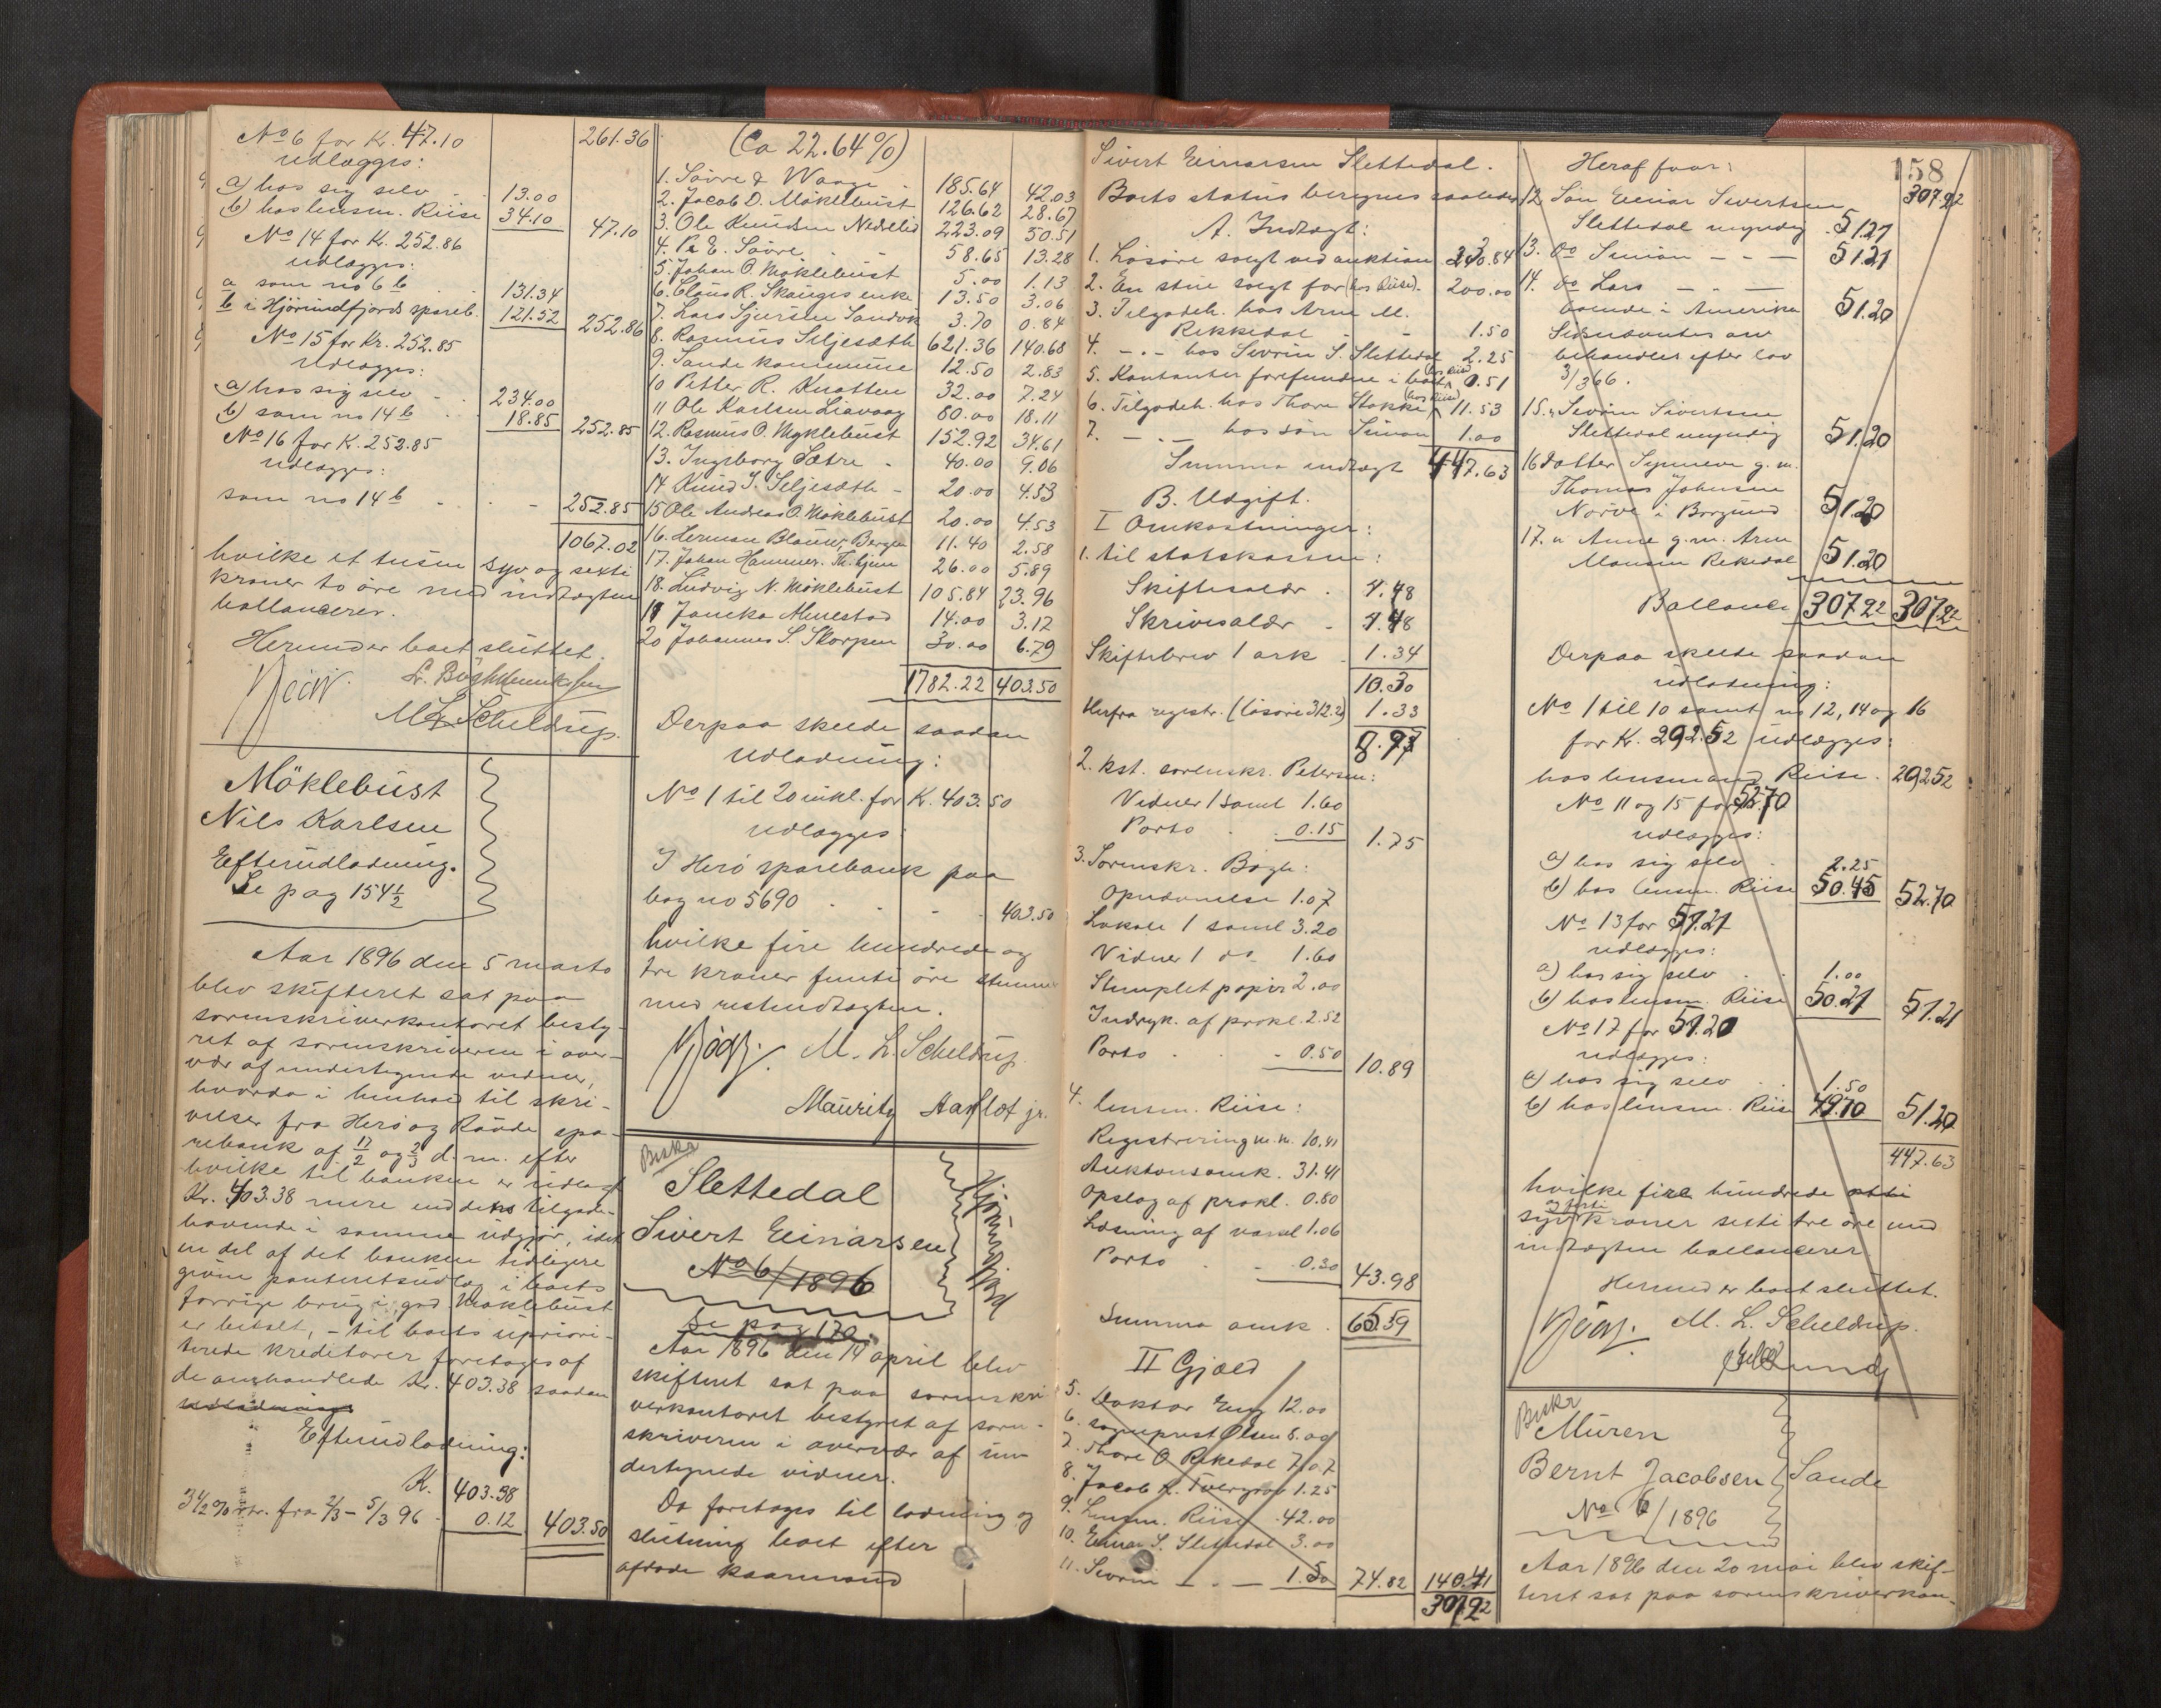 No 6 for Kr. 47.10 261.36
udlægges:
a) hos sig selv 13.00
b) hos lensm. Riise 34.10 47.10
No 14 for Kr. 252.86
udlægges:
a som no 6 b 131.34
b i Hjörundfjords spareb. 121.52 252.86
No 15 for Kr. 252.85
udlægges:
a) hos sig selv 234.00
b) som no 14 b 18.85 252.85
No 16 for K. 252.85
udlægges:
som no 14 b 252.85
1067.02
hvilke et tusen syv og sexti
kroner to öre med indtægten
ballancerer.
Herunder boet sluttet.
M. L. Scheldrup.
Möklebust
Nils Karlsen
Efterudlodning.
Se pag 154 1/2
Aar 1896 den 5 marts
blev skifteret sat paa
sorenskriverkontoret besty-
ret af sorenskriveren i over-
vær af undertegnede vidner,
hvorda i henhold til skri-
velser fra Herö og Rövde spa-
rebank af 17/2 og 2/3 d. m. efter
hvilke til banken er udlagt
Kr. 403.38 mere end dens tilgode-
havende i samme udgjör, idet
en del af det banken tidligere
givne panteretsudlæg i boets
forrige brug i, grd. Möklebust
er betalt, - til boets upriori-
terede kreditorer foretages af
de omhandlede Kr. 403.38 saadan
udlodning
Efterudlodning:
K. 403.38
3 1/2 % rtr. fra 2/3 - 5/3 96 0.12 403.50
(Ca 22.64 %)
1. Saure & Waage 185.64 42.03
2. Jacob D. Möklebust 126.62 28.67
3. Ole Knudsen Nedrelid 223.09 50.51
4. P. E. Saure 58.65 13.28
5. Johan O. Möklebust 5.00 1.13
6. Claus R. Skauges enke 13.50 3.06
7. Lars Sjursen Sandvik 3.70 0.84
8. Rasmus Seljesæth 621.36 140.68
9. Sande kommune 12.50 2.83
10 Petter R. Knotten 32.00 7.24
11 Ole Karlsen Liavaag 80.00 18.11
12. Rasmus O. Myklebust 152.92 34.61
13. Ingeborg Sætre 40.00 9.06
14 Knud J. Seljesæth 20.00 4.53
15 Ole Andreas O. Möklebust 20.00 4.53
16. Herman Blauuw, Bergen 11.40 2.58
17. Johan Hammer. Th.hjem 26.00 5.89
18. Ludvig N. Möklebust 105.84 23.96
19 Almestad 14.00 3.17
20 Johannes S. Skorpen 30.00 6.79
1782.22 403.50
Derpaa skeede saadan
Udlodning:
No 1 til 20 inkl. for K. 403.50
udlægges
I Herö sparebank paa
bog no 5690 403.50
hvilke fire hundrede og
tre kroner femti öre stemmer
med restindtægten.
M. L. Scheldrup
Mauritz Aarflot jr.
Buskr
Slettedal
Sivert Einarsen
Hjörundfjord
No 6/1896
Se pag 170.
Aar 1896 den 14 april blev
skifteret sat paa sorenskri
verkontoret bestyret af soren-
skriveren i overvær af un
dertegnede vidner.
Da foretages til lodning og
slutning boet efter
afdöde kaarmand
158
Sivert Einarsen Slettedal.
Boets status beregnes saaledes
A. Indtægt:
1. Lösöre solgt ved auktion 230.84
2. En stue solgt for (hos Riise) 200.00
3. Tilgodeh. hos Arne M.
Rekkedal 1.50
4. - . - hos Severin S. Slettedal 2.25
5. Kontanter forefundne i boet (hos Riise) 0.51
6. Tilgodeh. hos Thore Stokke (hos Riise) 11.53
7. - . - hos sön Simon 1.00
Summa indtægt 447.63
B. Udgift.
I Omkostninger:
1. til statskassen:
Skiftesalær 4.48
Skrivesalær 4.48
Skiftebrev 1 ark 1.34
10.30
Herfra registr. (lösöre 312.2) 1.33
8.97
2. kst. sorenskr. Petersen:
Vidner 1 saml 1.60
Porto 0.15 1.75
3. Sorenskr. Bögh:
Opnævnelse 1.07
Lokale 1 saml 3.20
Vidner 1 do 1.60
Stemplet papir 2.00
Indryk. af prokl. 2.52
Porto 0.50 10.89
4. lensm. Riise:
Registrering m.m. 10.41
Auktionsomk. 31.41
Opslag af prokl. 0.80
Læsning af varsel 1.06
Porto 0.30 43.98
Summa omk. 65.59
II Gjæld
5. Doktor Eng 12.00
6. sogneprest Olsen 8.00
7. Thore O. Rekedal 7.07
8. Jacob K. 1.25
9. Lensm. Riise 42.00
10. Einar S. Slettedal 3.00
11. Severin - . - 1.50 74.82 140.41
307.22
Heraf faar: 307.22
12. Sön Einar Sivertsen
Slettedal myndig 51.21
13. do Simon - - - 51.21
14. do Lars - - -
boende i Amerika 51.20
behandles efter lov
3/366.
15. Severin Sivertsen
Slettedal myndig 51.20
16 datter Synneve g. m.
Thomas Johnsen
Nörve i Borgund 51.20
17. " Anne g. m. Arne
Monsen Rekedal 51.20
Ballance 307.22 307.22
Derpaa skeede saadan
udlodning:
No 1 til 10 samt no 12, 14 og 16
for K. 292.52 udlægges:
hos lensmand Riise 292.52
No 11 og 15 for 52.70
udlægges:
a) hos sig selv 2.25
b) hos lensm. Riise 50.45 52.70
No 13 for 51.21
udlægges:
a) hos sig selv 1.00
b) hos lensm. Riise 50.21 51.21
No 17 for 51.20
udlægges:
a) hos sig selv 1.50
b) hos lensm. Riise 49.70 51.20
447.63
hvilke fire hundrede otti
og förti
syv kroner sexti tre öre med
indtægten ballancerer.
Hermed er boet sluttet.
M. L. Scheldrup.
Buskr
Muren
Bernt Jacobsen Sande
No 6/1896
Aar 1896 den 20 mai blev skif-
teret sat paa sorenskriverkon-